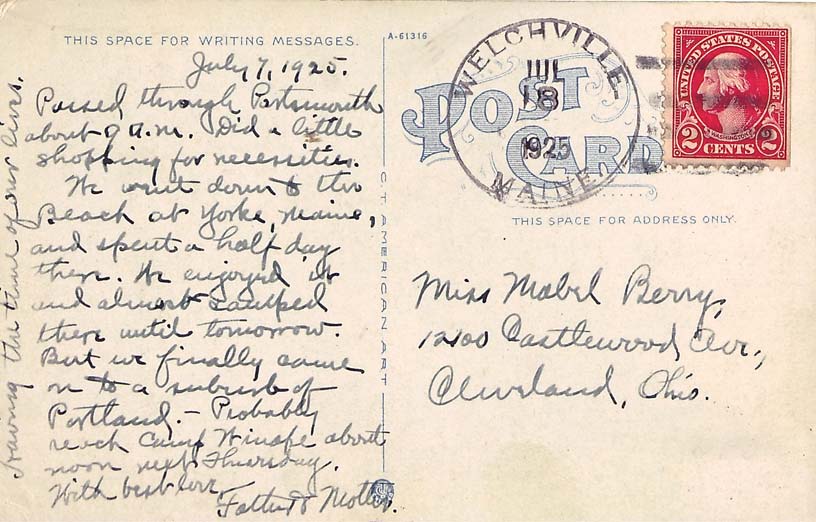 THIS SPACE FOR WRITING MESSAGES.
A-61316
July 7, 1925.
Passed through Portsmouth
about 9 a.m. Did a little
shopping for necessities.
We went down to the
Beach at Yorke, Maine,
and spent a half day
there. We enjoyed it
and almost camped
there until tomorrow.
But we finally came
on to a suburb of
Portland. - Probably
reach Camp about
noon next Thursday.
With best love,
Father & Mother.
Having the time of our lives.
C.T. AMERICAN ART
POST CARD
WELCHVILLE
JUL
8
1925
MAINE
UNITED STATES POSTAGE
WASHINGTON
2 CENTS 2
THIS SPACE FOR ADDRESS ONLY.
Miss Mabel Berry,
12100 Castlewood Ave.,
Cleveland, Ohio.